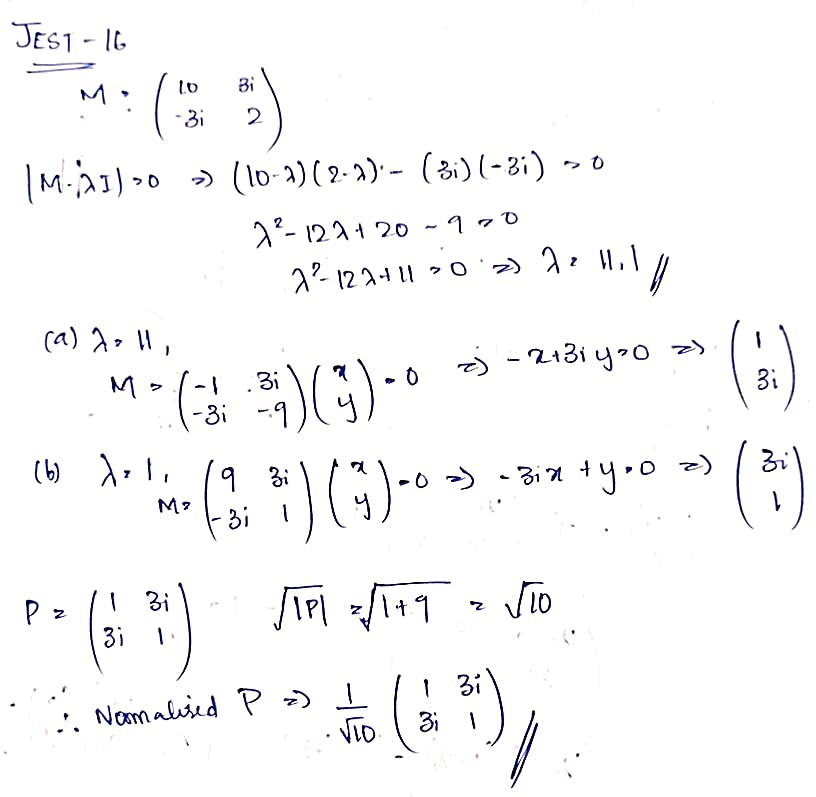 JEST - 16
M = ( 10 3i
-3i 2 )
|M-λI| = 0 => (10-λ)(2-λ) - (3i)(-3i) = 0
λ² - 12λ + 20 - 9 = 0
λ² - 12λ + 11 = 0 => λ = 11, 1 //
(a) λ = 11,
M = ( -1 3i
-3i -9 ) ( x
y ) = 0 => -x + 3iy = 0 => ( 1
3i )
(b) λ = 1,
M = ( 9 3i
-3i 1 ) ( x
y ) = 0 => -3ix + y = 0 => ( 3i
1 )
P = ( 1 3i
3i 1 ) √|P| = √1+9 = √10
∴ Normalised P => 1/√10 ( 1 3i
3i 1 ) //